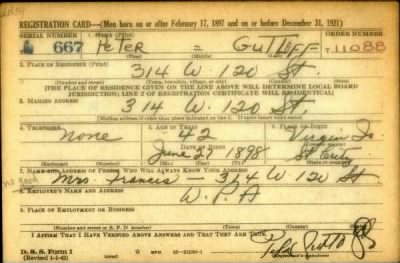 REGISTRATION CARD—(Men born on or after February 17, 1897 and on or before December 31, 1921)
SERIAL NUMBER 1. NAME (Print) ORDER NUMBER
667 Peter = Guttoff T 11088
2. PLACE OF RESIDENCE (Print)
314 W 120 St.
(Number and street) (Town, township, village, or city) (County) (State)
[THE PLACE OF RESIDENCE GIVEN ON THE LINE ABOVE WILL DETERMINE LOCAL BOARD
JURISDICTION; LINE 2 OF REGISTRATION CERTIFICATE WILL BE IDENTICAL]
3. MAILING ADDRESS
314 W. 120 St
[Mailing address if other than place indicated on line 2. If same insert word same]
4. TELEPHONE 5. AGE IN YEARS 6. PLACE OF BIRTH
none 42 Virgin Is.
DATE OF BIRTH
June 27 1898 St
(Exchange) (Number) (Mo.) (Day) (Yr.) (State or country)
7. NAME AND ADDRESS OF PERSON WHO WILL ALWAYS KNOW YOUR ADDRESS
Mrs. Francis — 314 W 120 St
8. EMPLOYER'S NAME AND ADDRESS
W. P. A
9. PLACE OF EMPLOYMENT OR BUSINESS
(Number and street or R. F. D. number) (Town) (County) (State)
I AFFIRM THAT I HAVE VERIFIED ABOVE ANSWERS AND THAT THEY ARE TRUE.
D. S. S. Form 1
(Revised 1-1-42) (over)